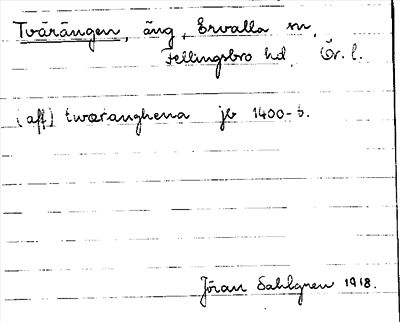 Tvärängen, äng, Ervalla sn,
Fellingsbro hd, Ör. l.
(aff) twæranghena jb 1400-t.
Jöran Sahlgren 1918.